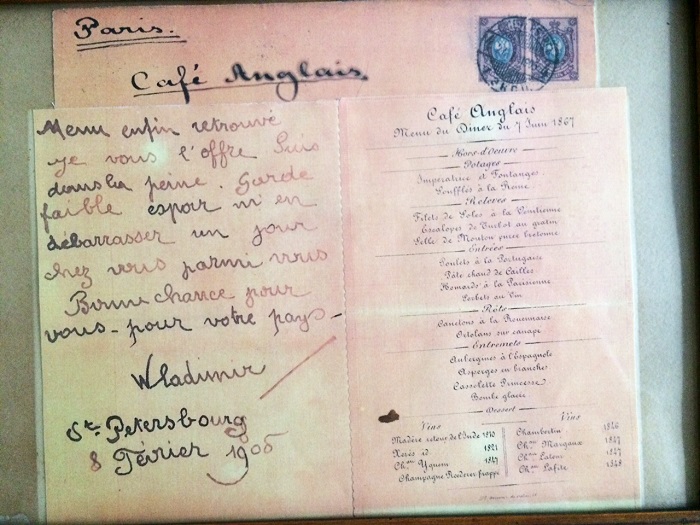 Paris.
Café Anglais
Menu enfin retrouvé
je vous l'offre Suis
dans la peine. Garde
faible espoir m'en
débarrasser un jour
chez vous parmi vous
Bonne chance pour
vous - pour votre pays -
Wladimir
St. Petersbourg
8 Février 1905
Café Anglais
Menu du Dîner du 7 Juin 1867
Hors-d'oeuvre
Potages
Impératrice et Fontanges
Soufflés à la Reine
Relevés
Filets de Soles à la Vénitienne
Escalopes de Turbot au gratin
Selle de Mouton purée bretonne
Entrées
Poulets à la Portugaise
Pâté chaud de Cailles
Homards à la Parisienne
Sorbets au Vin
Rôts
Canetons à la Rouennaise
Ortolans sur canapé
Entremets
Aubergines à l'espagnole
Asperges en branches
Cassolette Princesse
Bombe glacée
Dessert
Vins
Madère retour de l'Inde 1810
Xérès 1821
Chau Yquem 1847
Champagne Roederer frappé
Vins
Chambertin 1846
Chau Margaux 1847
Chau Latour 1847
Chau Lafite 1848